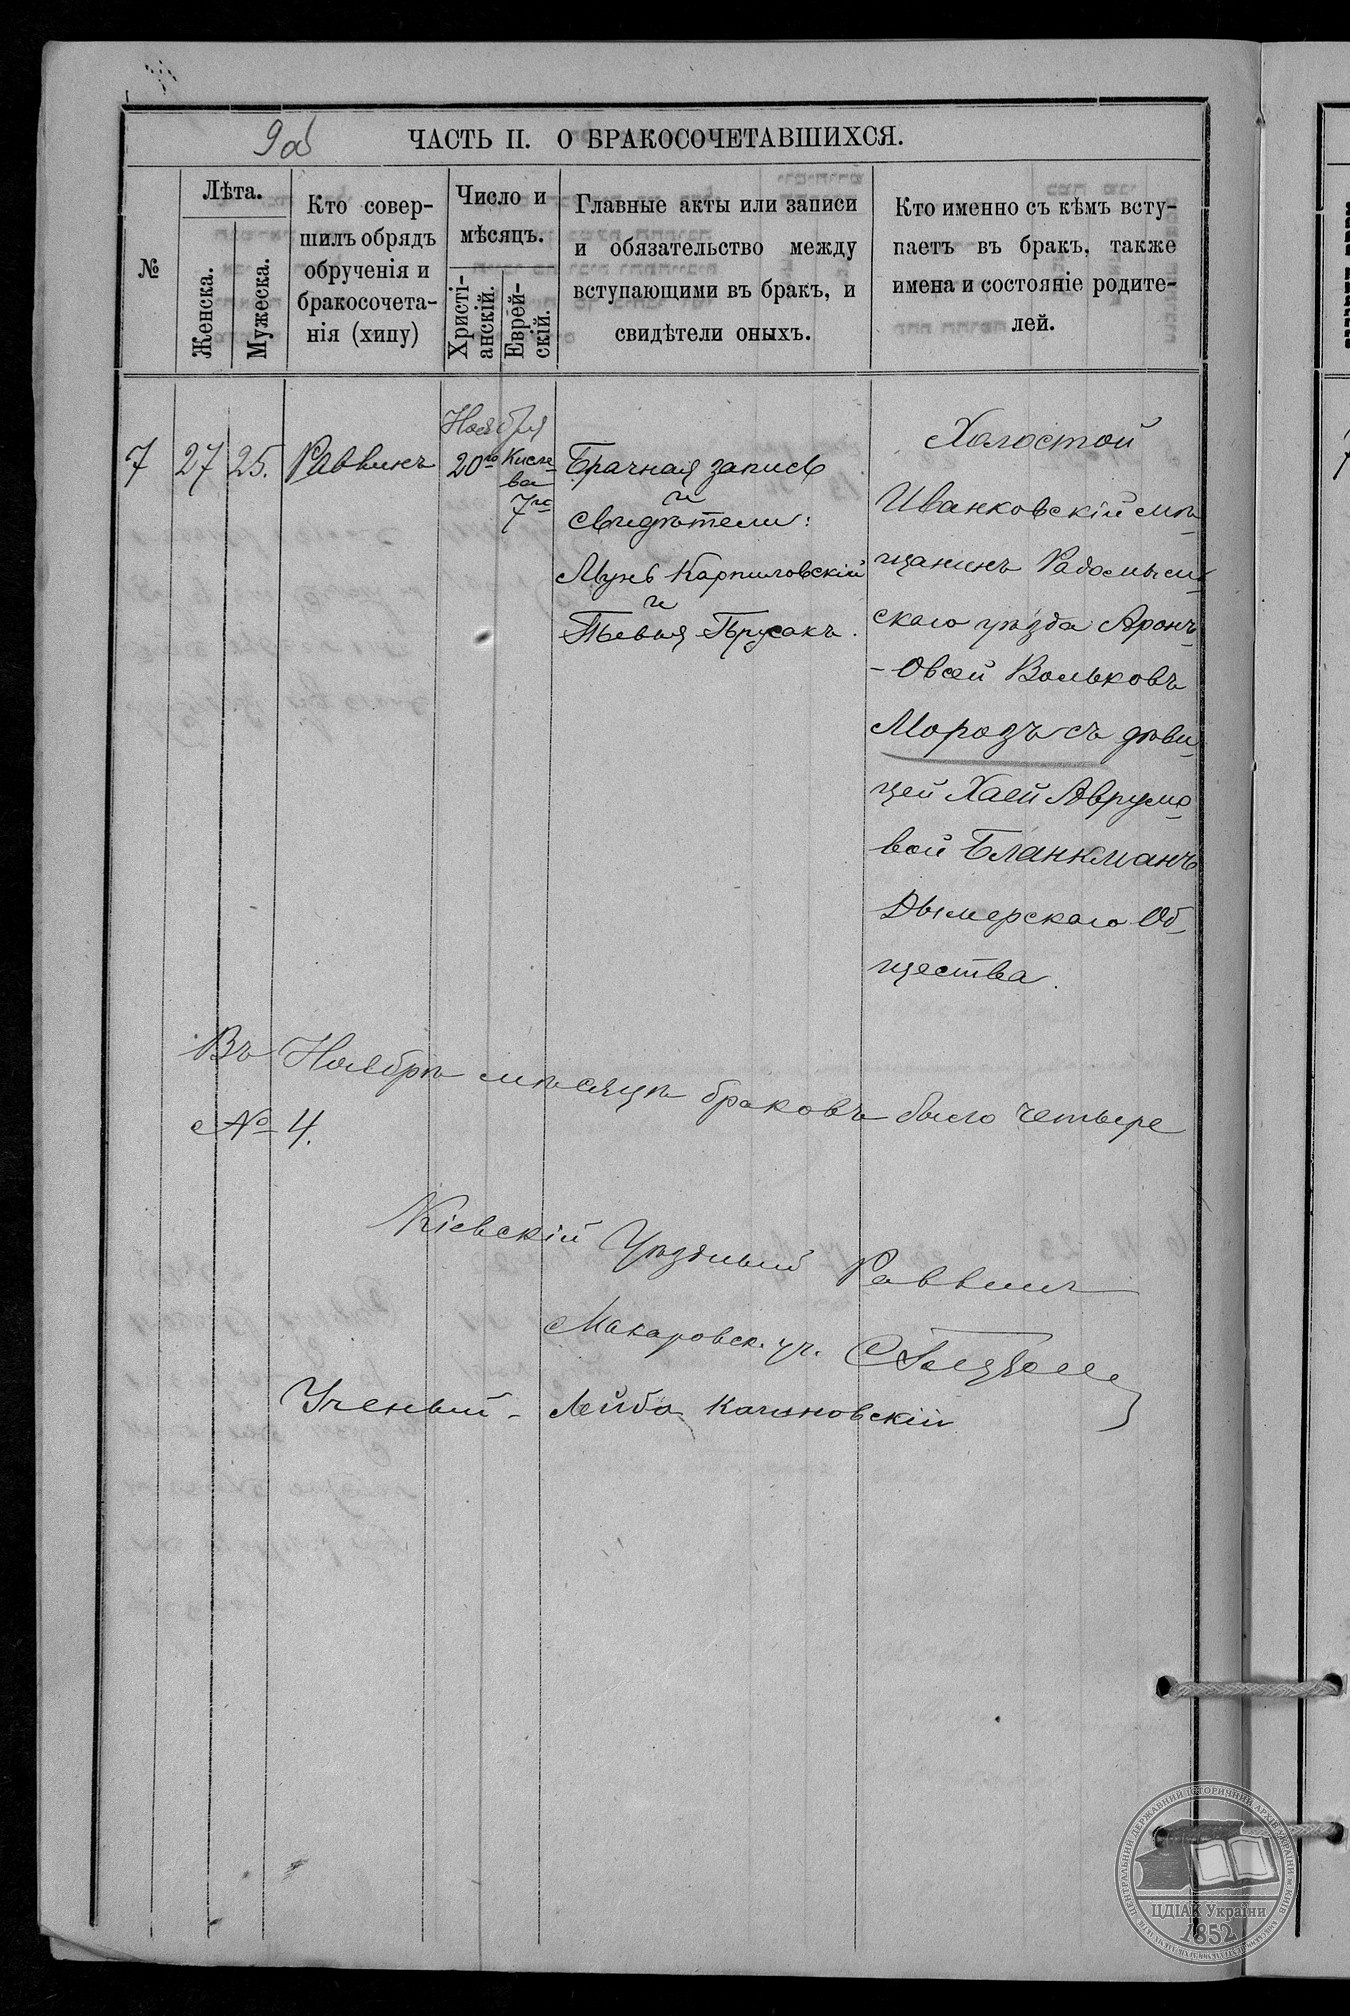 9об
ЧАСТЬ II. О БРАКОСОЧЕТАВШИХСЯ.
№
Лѣта.
Женска.
Мужеска.
Кто совер-
шилъ обрядъ
обрученія и
бракосочета-
нія (хипу)
Число и
мѣсяцъ.
Христі-
анскій.
Еврей-
скій.
Главные акты или записи
и обязательство между
вступающими въ бракъ, и
свидѣтели оныхъ.
Кто именно съ кѣмъ всту-
паетъ въ бракъ, также
имена и состояніе родите-
лей.
7
27
25.
Раввинъ
Ноября
20го
Кисле-
ва
7го
Брачная запись
и
свидѣтели:
Мунь Карпиловскій
и
Тьевья Прусакъ.
Холостой
Иванковскій мѣ-
щанинъ Радомысль-
скаго уѣзда Аронъ-
-Овсей Вольковъ
Морозъ съ дѣви-
цей Хаей Аврумо-
вой Бланкманъ
Дымерскаго Об-
щества.
Въ Ноябрѣ мѣсяцѣ браковъ было четыре
№ 4.
Кіевскій Уѣздный Раввинъ
Макаровск. уч.
Ученый - Лейба Качановскій
ЦЕНТРАЛЬНИЙ ДЕРЖАВНИЙ ІСТОРИЧНИЙ АРХІВ УКРАЇНИ М. КИЇВ
ЦДІАК України
1852